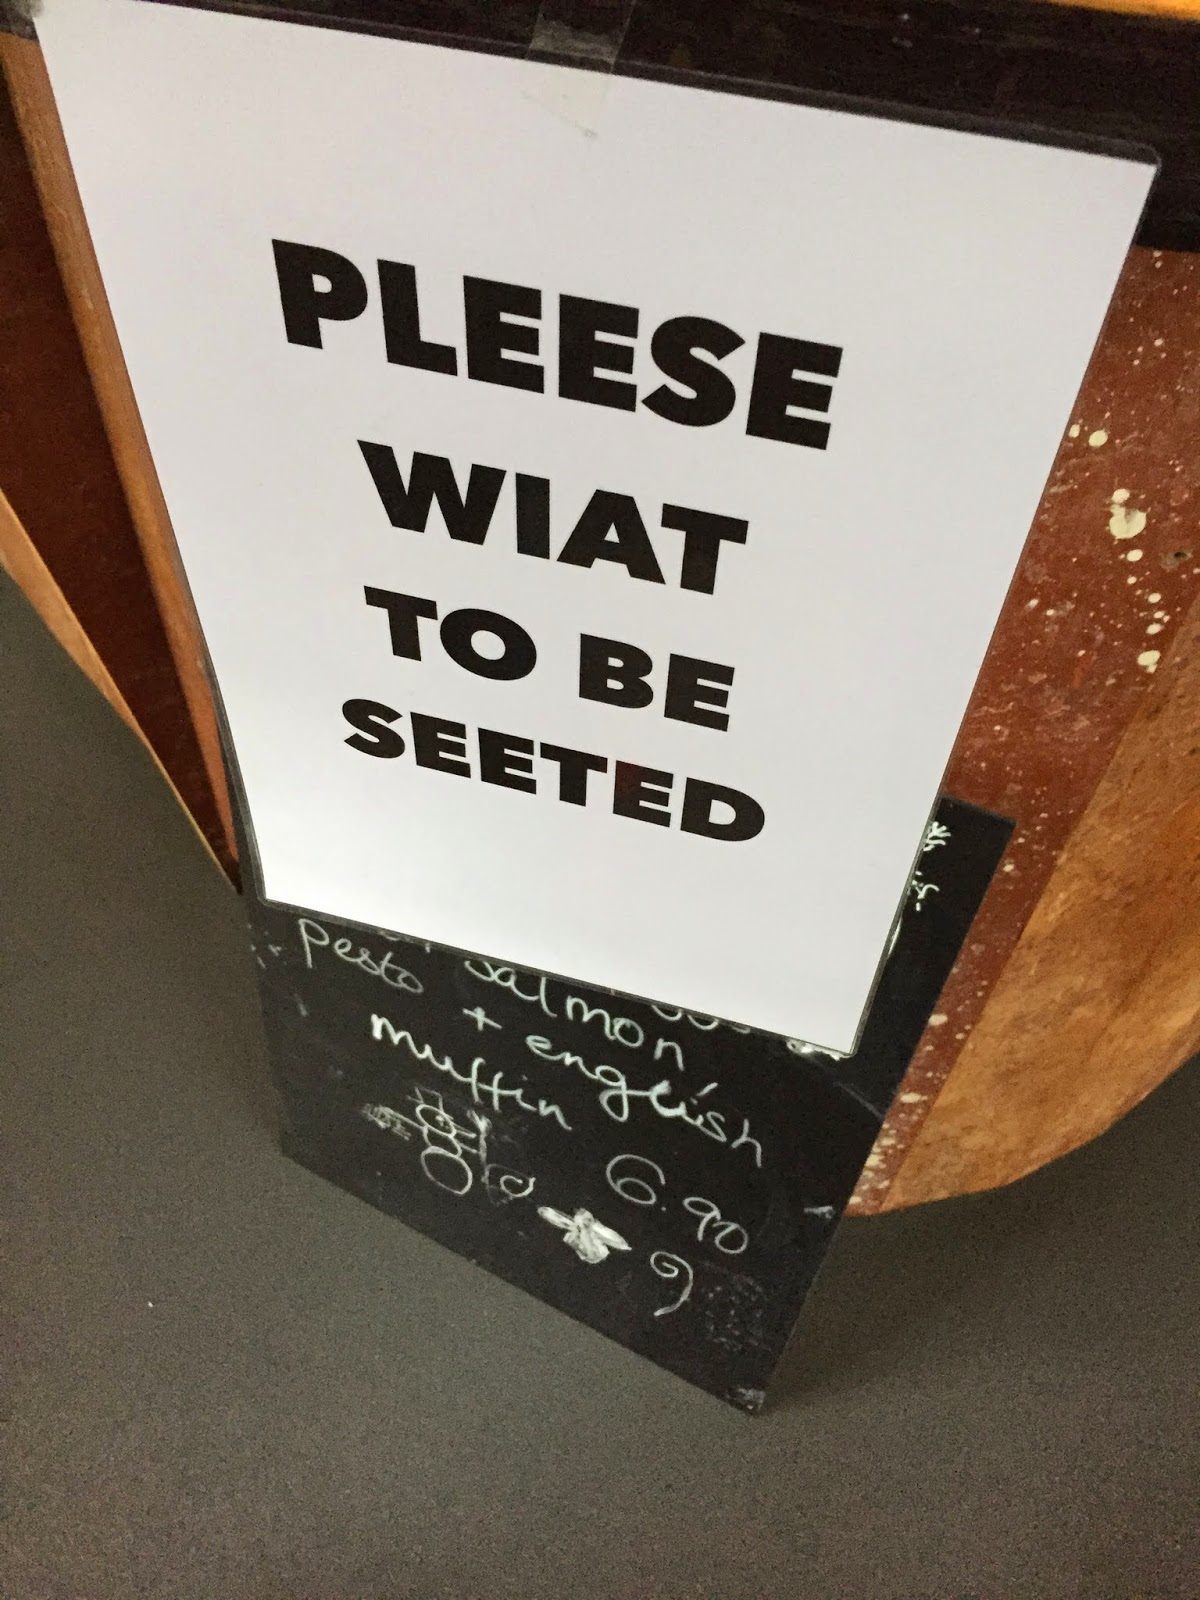 PLEESE
WIAT
TO BE
SEETED
salmon
pesto + english
muffin
6.90